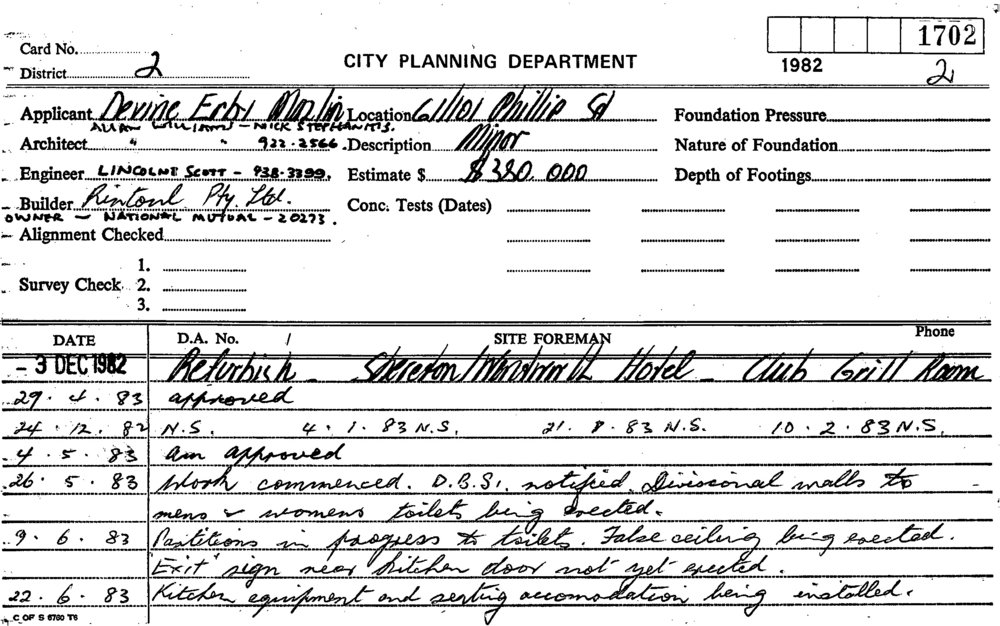 1702
Card No.
CITY PLANNING DEPARTMENT
1982
2
District 2
Applicant Devine Erby Mazlin Location 61/101 Phillip St Foundation Pressure
ALLAN WILLIAMS - NICK STEPHANITIS.
Architect " " 922-2566. Description Minor Nature of Foundation
Engineer LINCOLNE SCOTT - 938-3399. Estimate $ $380,000 Depth of Footings
Builder Rintoul Pty Ltd. Conc. Tests (Dates)
OWNER - NATIONAL MUTUAL - 20273.
Alignment Checked
1.
Survey Check 2.
3.
DATE D.A. No. / SITE FOREMAN Phone
- 3 DEC 1982 Refurbish - Hotel - Club Grill Room
29. 4. 83 approved
24. 12. 82 N.S. 4. 1. 83 N.S. 21. 8. 83 N.S. 10. 2. 83 N.S.
4. 5. 83 am approved
26. 5. 83 Work commenced. D.B.S. notified. Divisional walls to
mens & womens toilets being erected.
9. 6. 83 Partitions in progress to toilets. False ceiling being erected.
'Exit' sign near kitchen door not yet erected.
22. 6. 83 Kitchen equipment and seating accomodation being installed.
C OF S 6760 T6